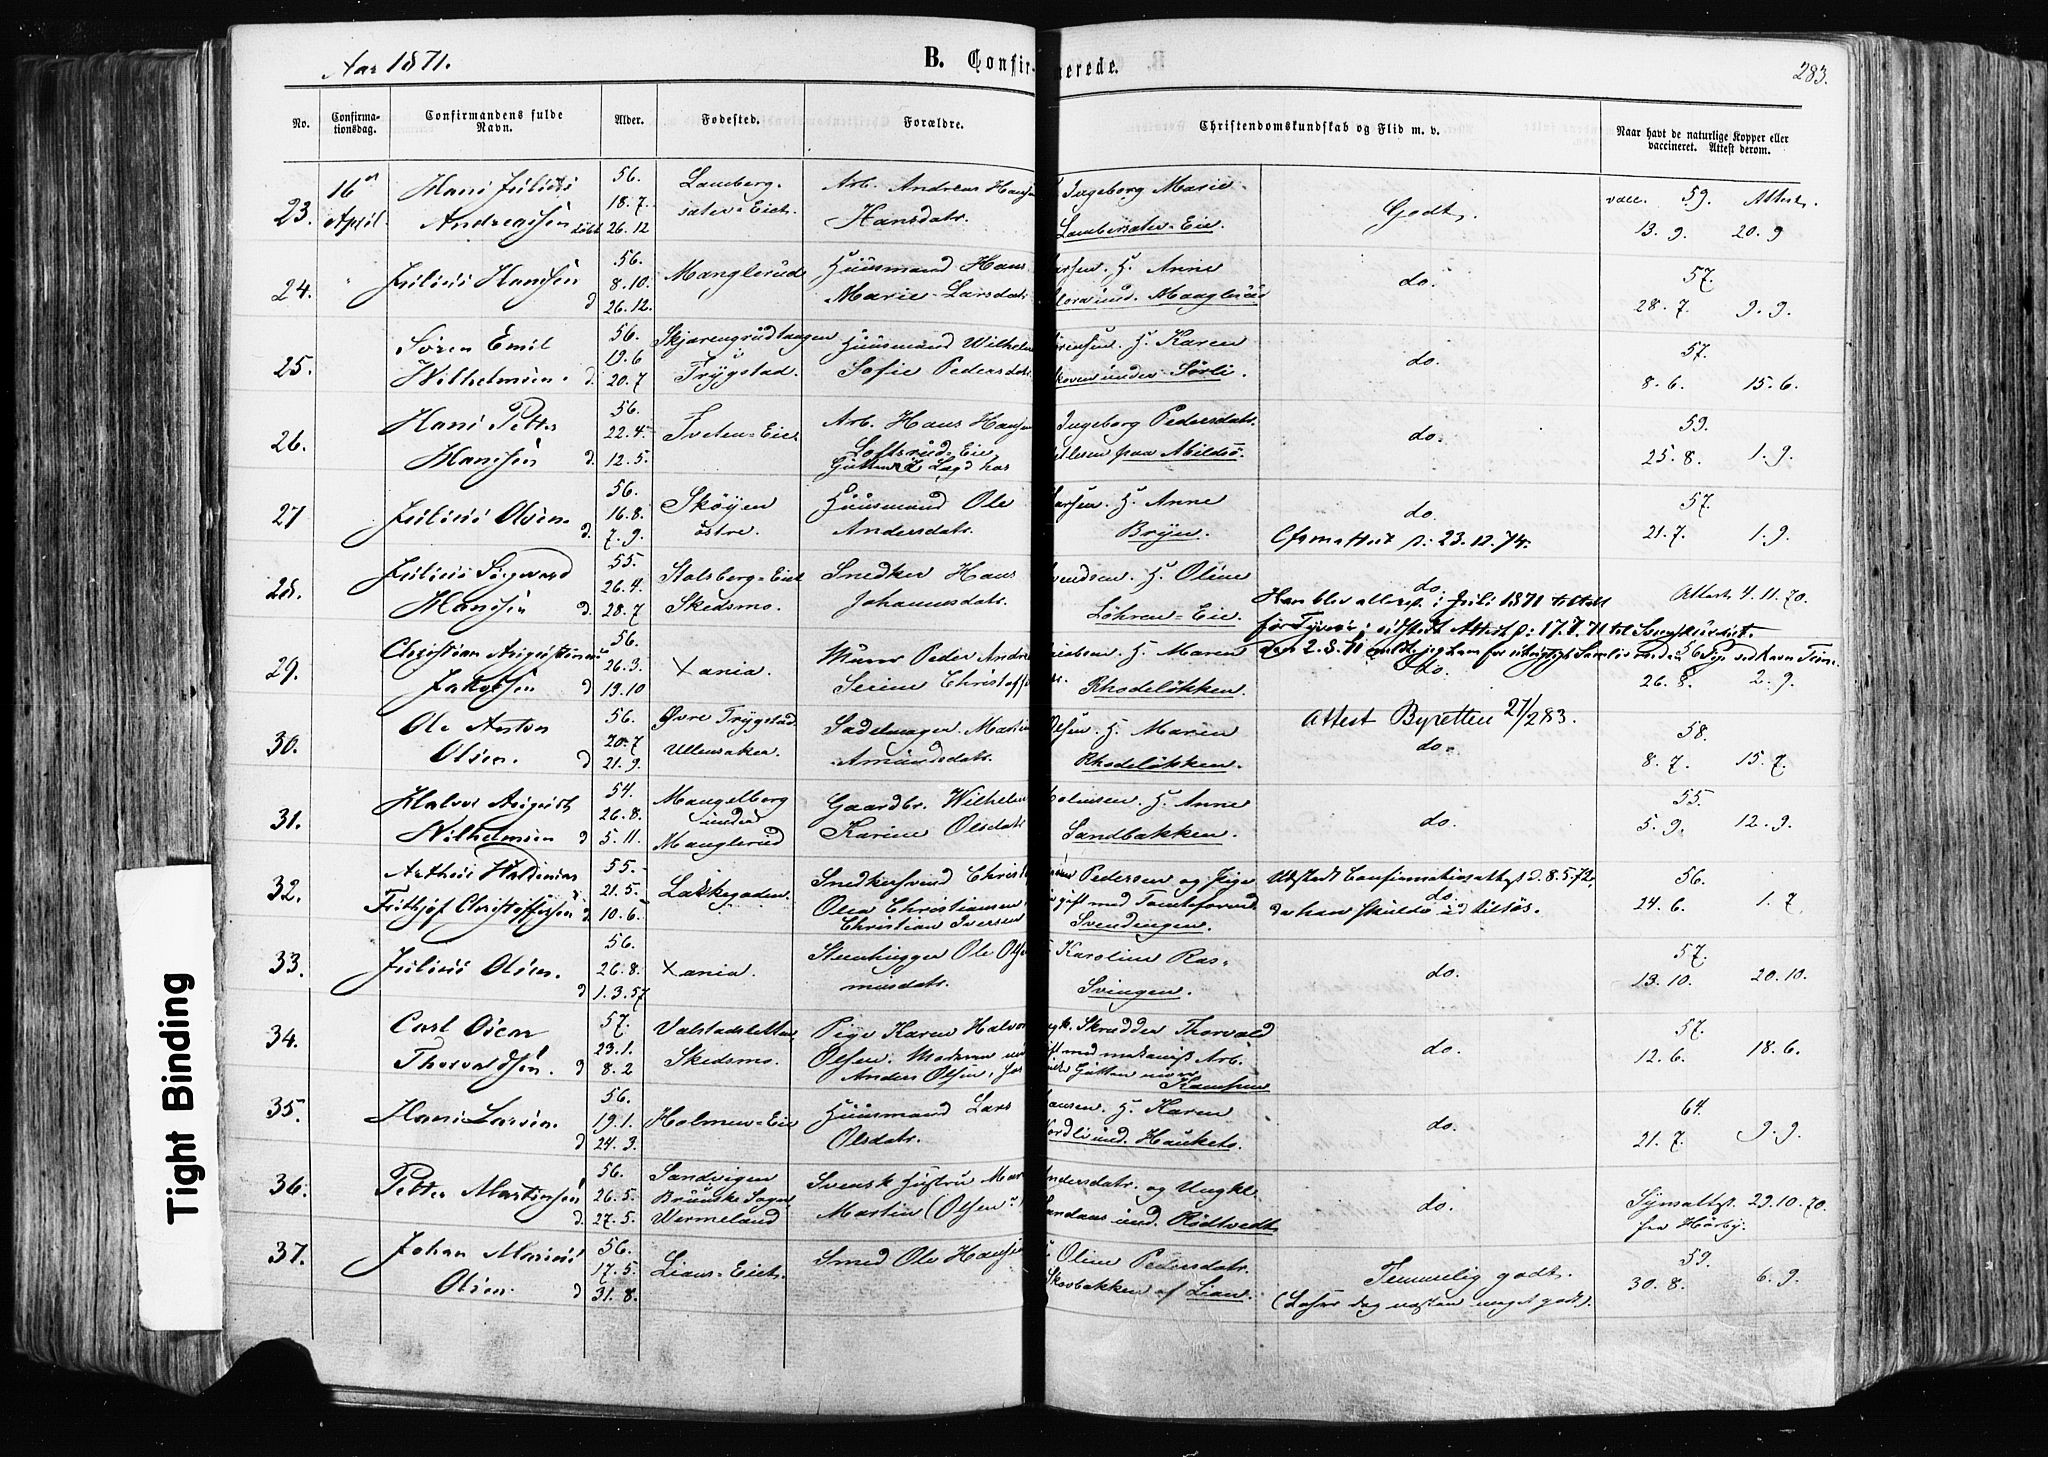 Aar 1871.
B. Confir- merede.
283.
No.
Confirma-
tionsdag.
Confirmandens fulde
Navn.
Alder.
Fødested.
Forældre.
Christendomskundskab og Flid m. v.
Naar havt de naturlige Kopper eller
vaccineret. Attest derom.
23. 16de April Hans Julius
Andreassen døbt
56.
18.7.
26.12
Lamberg-
sæter-Eiet.
Arb. Andreas Hansen Ingeborg Marie
Hansdatr. Lambersæter-Eie.
Godt.
vacc. 59. Attest.
13. 9. 20. 9
24. " Julius Hansen d
56.
8.10.
26.12.
Manglerud
Huusmand Hans Larsen. H. Anne
Marie Larsdatr. und. Manglerud
do.
57.
28. 7. 9. 9.
25. Søren Emil
Wilhelmsen. d.
56.
19.6
20.7
Skjærengrudtangen
Trygstad.
Huusmand Wilhelm Sørensen. H. Karen
Sofie Pedersdatr. Skoven under Sørli.
do.
57.
8. 6. 15. 6.
26. Hans Petter
Hansen d.
56.
22.4.
12.5.
Tveten-Eie.
Arb. Hans Hansen Ingeborg Pedersdatr.
Loftsrud-Eie
Gutten i Lagd hos paa Abildsø.
do.
59.
25. 8. 1. 9.
27 Julius Olsen. d.
56.
16.8.
7. 9.
Skøyen
østre.
Huusmand Ole Larsen. H. Anne
Andersdatr. Bryn.
do.
Cfsmattest d: 23.12.74.
57.
21. 7. 1. 9.
28. Julius Sigevard
Hansen d.
55.
26.4.
28.7
Stalsberg-Eiet
Skedsmo.
Snedker Hans Svendsen. H. Oline
Johannesdatr. Løhren-Eie.
do.
Han blev i Juli 1871 tiltalt
for Tyveri; Attest d: 17.7.71
Attest 4. 11. 70.
29. Christian Augustinus
Jakobsen d
56.
26.3.
19.10
Xania.
Murer Peder Andr. Jacobsen. H. Maren
Serine Christoff Rhodeløkken.
do.
56.
26. 8. 2. 9.
30. Ole Anton
Olsen. d
56.
20.7
21.9.
Øvre Trygstad
Ullensaker.
Sadelmager Martin Olsen. H. Maren
Amundsdatr. Rhodeløkken.
Attest Byretten 27/2 83.
do.
58.
8. 7. 15. 7.
31. Halvor August
Wilhelmsen d
54.
26.8.
5.11.
Mangelberg
under
Manglerud
Gaardbr. Wilhelm H. Anne
Karine Olsdatr. Sandbakken.
do.
55.
5. 9. 12. 9.
32. Arthur Waldemar
Frithjof Christoffersen d
55.
21.5.
10.6.
Lakkegaden.
Snedkersvend Christ Pedersen og Pige
Olea Christiansen, gift med Tomteforvd.
Christian Iversen Svendengen.
Udstedt Confirmationsattest d. 8.5.72,
do.
da han skulde ud tilsøs.
56.
24. 6. 1. 7.
33. Julius Olsen. d
56.
26.8.
1.3.57
Xania.
Steenhugger Ole Olsen Karoline Ras-
musdatr. Svingen.
do.
57.
13. 10. 20. 10.
34. Carl Oscar
Thorvaldsen. d
57.
23.1.
8.2
Valstadsletten
Skedsmo.
Pige Karen Halvor Ungk. Skrædder Thorvald
Olsen. Moderen nu gift med Arb.
Anders Olsen, Gutten
Kamphun
do.
57.
12. 6. 18. 6.
35. Hans Larsen. d
56.
19.1.
24.3.
Holmen-Eie
Huusmand Lars Hansen. H. Karen
Olsdatr. Nordli und. Hauketo.
do.
64.
21. 7. 9. 9.
36. Petter Martinsen d.
56.
26.5.
27.5.
Sandvigen
Brunske Sogn,
Wermeland
Svensk Hustru Mar Andersdatr. og Ungkl.
Martin (Olsen?) und. Rødtvedt
do.
Synsattest 29.10.70.
fra Hürby.
37. Johan Marius
Olsen. d
56.
17.5.
31.8.
Lians-Eiet.
Smed Ole Hansen Oline Pedersdatr.
Skovbakken af Lian.
Temmelig godt.
(Læser dog næsten meget godt).
59.
30. 8. 6. 9.
Tight Binding